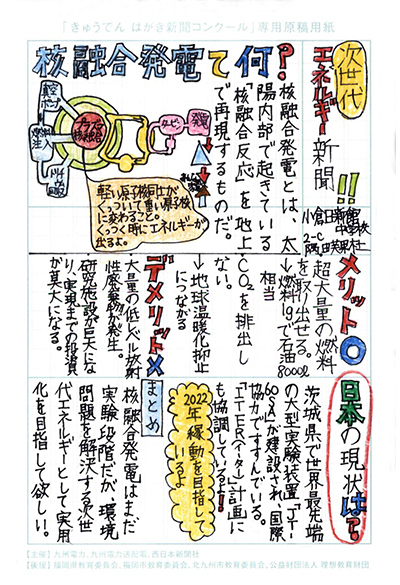 「きゅうでん はがき新聞コンクール」専用原稿用紙
次世代
エネルギー新聞!!
小倉日新館
中学校
2-C
核融合発電て何?
核融合発電とは、太
陽内部で起きている
核融合反応を地上
で再現するものだ。
真空
ポンプ
燃料
注入
プラズマ
核融合
タービン
発電
軽い原子核同士が
くっついて重い原子核
に変わること。
くっつく時にエネルギーが
出るよ。
メリット○
超大量の燃料
を取り出せる。
↓燃料1gで石油
8000L
相当
・CO2を排出し
ない。
↓地球温暖化抑止
につながる
デメリット×
・大量の低レベル放射
性廃棄物が発生。
・研究施設が巨大にな
り、実現までの投資
が莫大になる。
日本の現状は?
茨城県で世界最先端
の大型実験装置「JT-
60SA」が建設され、国際
協力ですすんでいる。
「ITER(イーター)」計画に
も協調している。
2022
年稼動を目指して
いるよ
まとめ
核融合発電はまだ
実験段階だが、環境
問題を解決する次世
代エネルギーとして実用
化を目指して欲しい。
【主催】九州電力、九州電力送配電、西日本新聞社
【後援】福岡県教育委員会、福岡市教育委員会、北九州市教育委員会、公益財団法人 理想教育財団